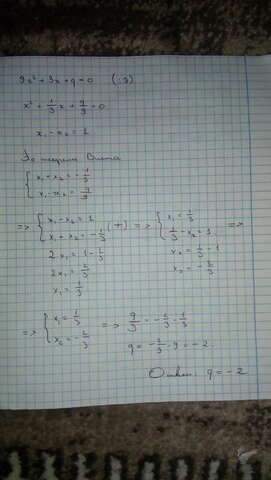 9x² + 3x + q = 0 (:9)
x² + 1/3 x + q/9 = 0
x₁ - x₂ = 1
По теореме Виета
{ x₁ + x₂ = - 1/3
x₁ · x₂ = q/9
=> { x₁ - x₂ = 1
x₁ + x₂ = - 1/3 (+) => { x₁ = 1/3
1/3 - x₂ = 1 =>
2x₁ = 1 - 1/3
x₂ = 1/3 - 1
2x₁ = 2/3
x₂ = - 2/3
x₁ = 1/3
=> { x₁ = 1/3
x₂ = - 2/3 => q/9 = - 2/3 · 1/3
q = - 2/9 · 9 = - 2
Ответ: q = - 2